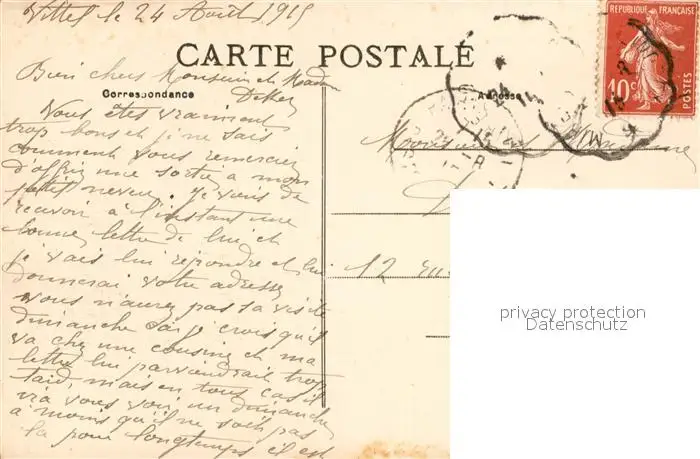 Vittel le 24 Août 1915
CARTE POSTALE
REPUBLIQUE FRANÇAISE
10c
POSTES
Bien chers Monsieur et Mad
Correspondance
Adresse
Vous êtes vraiment
trop bons et je ne sais
comment vous remercier
d'offrir une sortie a mon
petit neveu. Je viens de
recevoir à l'instant une
bonne lettre de lui et
je vais lui répondre et lui
donnerai votre adresse
vous n'aurez pas sa visite
dimanche car je crois qu'il
va chez une cousine et ma
lettre lui parviendrait trop
tard, mais en tous cas il
ira vous voir un dimanche
à moins qu'il ne soit pas
là pour longtemps il est
Monsieur et Madame
12 rue
privacy protection
Datenschutz